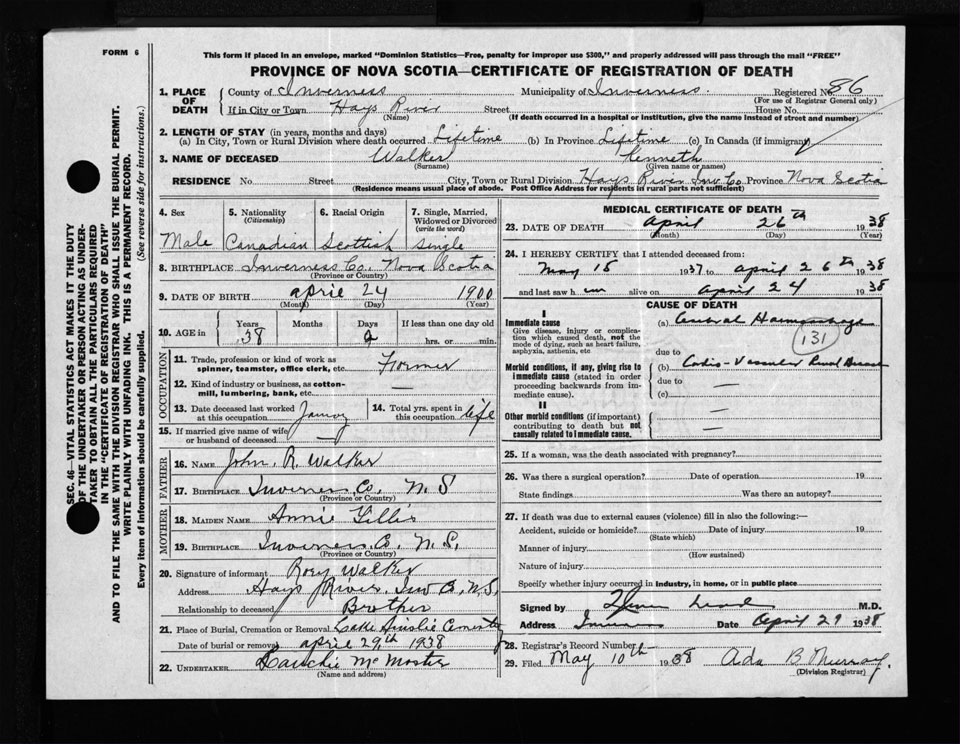 FORM 6
This form if placed in an envelope, marked "Dominion Statistics—Free, penalty for improper use $300," and properly addressed will pass through the mail "FREE"
PROVINCE OF NOVA SCOTIA—CERTIFICATE OF REGISTRATION OF DEATH
1. PLACE OF DEATH County of Inverness Municipality of Inverness. Registered No. 86
(For use of Registrar General only)
If in City or Town Hays River Street House No.
(Name) (If death occurred in a hospital or institution, give the name instead of street and number)
2. LENGTH OF STAY (in years, months and days)
(a) In City, Town or Rural Division where death occurred Lifetime (b) In Province Lifetime (c) In Canada (if immigrant)
3. NAME OF DECEASED Walker Kenneth
(Surname) (Given name or names)
RESIDENCE No. Street City, Town or Rural Division Hays River Inv Co Province Nova Scotia
(Residence means usual place of abode. Post Office Address for residents in rural parts not sufficient)
4. Sex 5. Nationality 6. Racial Origin 7. Single, Married, Widowed or Divorced
(Citizenship) (write the word)
Male Canadian Scottish single
8. BIRTHPLACE Inverness Co., Nova Scotia
(Province or Country)
9. DATE OF BIRTH April 24 1900
(Month) (Day) (Year)
10. AGE in Years Months Days If less than one day old
38 2 hrs. or min.
OCCUPATION
11. Trade, profession or kind of work as spinner, teamster, office clerk, etc. Farmer
12. Kind of industry or business, as cotton-mill, lumbering, bank, etc. —
13. Date deceased last worked at this occupation 14. Total yrs. spent in this occupation life
15. If married give name of wife or husband of deceased —
FATHER
16. NAME John. R. Walker
17. BIRTHPLACE Inverness Co. N. S
(Province or Country)
MOTHER
18. MAIDEN NAME Annie Gillis
19. BIRTHPLACE Inverness Co. N. S.
(Province or Country)
20. Signature of informant Rory Walker
Address Hays River. Inv Co. N. S.
Relationship to deceased Brother
21. Place of Burial, Cremation or Removal Lake Ainslie Cemetery
Date of burial or removal april 29th 1938
22. UNDERTAKER Lauchie McMaster
(Name and address)
MEDICAL CERTIFICATE OF DEATH
23. DATE OF DEATH April 26th 1938
(Month) (Day) (Year)
24. I HEREBY CERTIFY that I attended deceased from:
May 15 1937 to april 26th 1938
and last saw h im alive on april 24 1938
CAUSE OF DEATH
I
Immediate cause
Give disease, injury or complication which caused death, not the mode of dying, such as heart failure, asphyxia, asthenia, etc
(a) Cerebral Haemorrhage
131
due to
Morbid conditions, if any, giving rise to immediate cause (stated in order proceeding backwards from immediate cause).
(b) Cardio-Vascular Renal Disease
due to —
(c)
II
Other morbid conditions (if important) contributing to death but not causally related to immediate cause.
—
—
25. If a woman, was the death associated with pregnancy?
26. Was there a surgical operation? Date of operation 19
State findings Was there an autopsy?
27. If death was due to external causes (violence) fill in also the following:—
Accident, suicide or homicide? Date of injury 19
(State which)
Manner of injury
(How sustained)
Nature of injury
Specify whether injury occurred in industry, in home, or in public place
Signed by M.D.
Address Date April 29 1938
28. Registrar's Record Number
29. Filed May 10th 1938 Ada B Murray.
(Division Registrar)
SEC. 46—VITAL STATISTICS ACT MAKES IT THE DUTY
OF THE UNDERTAKER OR PERSON ACTING AS UNDERTAKER TO OBTAIN ALL THE PARTICULARS REQUIRED
IN THE "CERTIFICATE OF REGISTRATION OF DEATH"
AND TO FILE THE SAME WITH THE DIVISION REGISTRAR WHO SHALL ISSUE THE BURIAL PERMIT.
WRITE PLAINLY WITH UNFADING INK. THIS IS A PERMANENT RECORD.
Every item of Information should be carefully supplied. (See reverse side for instructions.)